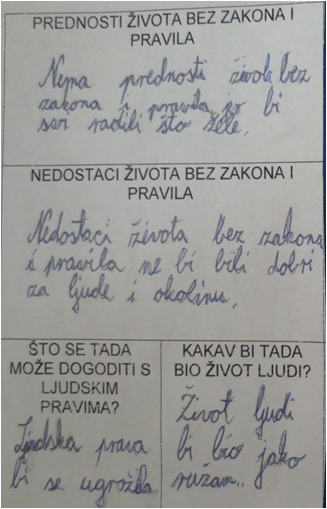 PREDNOSTI ŽIVOTA BEZ ZAKONA I
PRAVILA
Nema prednosti život bez
zakona i pravila jer bi
svi radili što žele.
NEDOSTACI ŽIVOTA BEZ ZAKONA I
PRAVILA
Nedostaci života bez zakona
i pravila ne bi bili dobri
za ljude i okolinu.
ŠTO SE TADA
MOŽE DOGODITI S
LJUDSKIM
PRAVIMA?
Ljudska prava
bi se ugrozila
KAKAV BI TADA
BIO ŽIVOT LJUDI?
Život ljudi
bi bio jako
ružan..